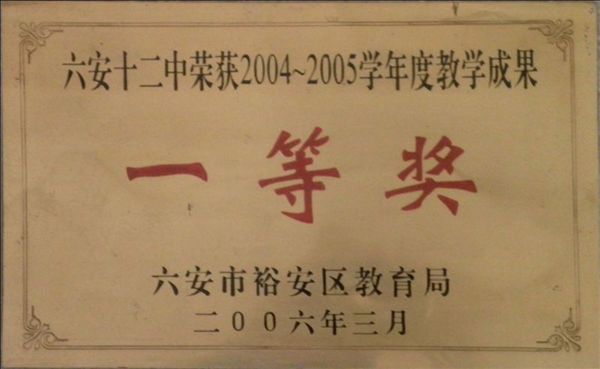 六安十二中荣获2004~2005学年度教学成果
一等奖
六安市裕安区教育局
二００六年三月